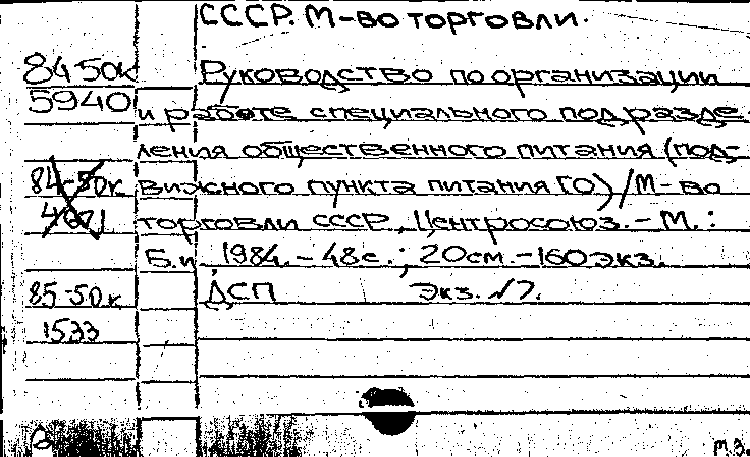 СССР. М-во торговли.
84 50к Руководство по организации
5940 и работе специального подразде
ления общественного питания (под-
84-50к вижного пункта питания ГО) / М-во
торговли СССР, Центросоюз. - М.:
Б.и 1984. - 48с.; 20см. - 160экз.
85-50к ДСП Экз. №7.
1533
м.з.